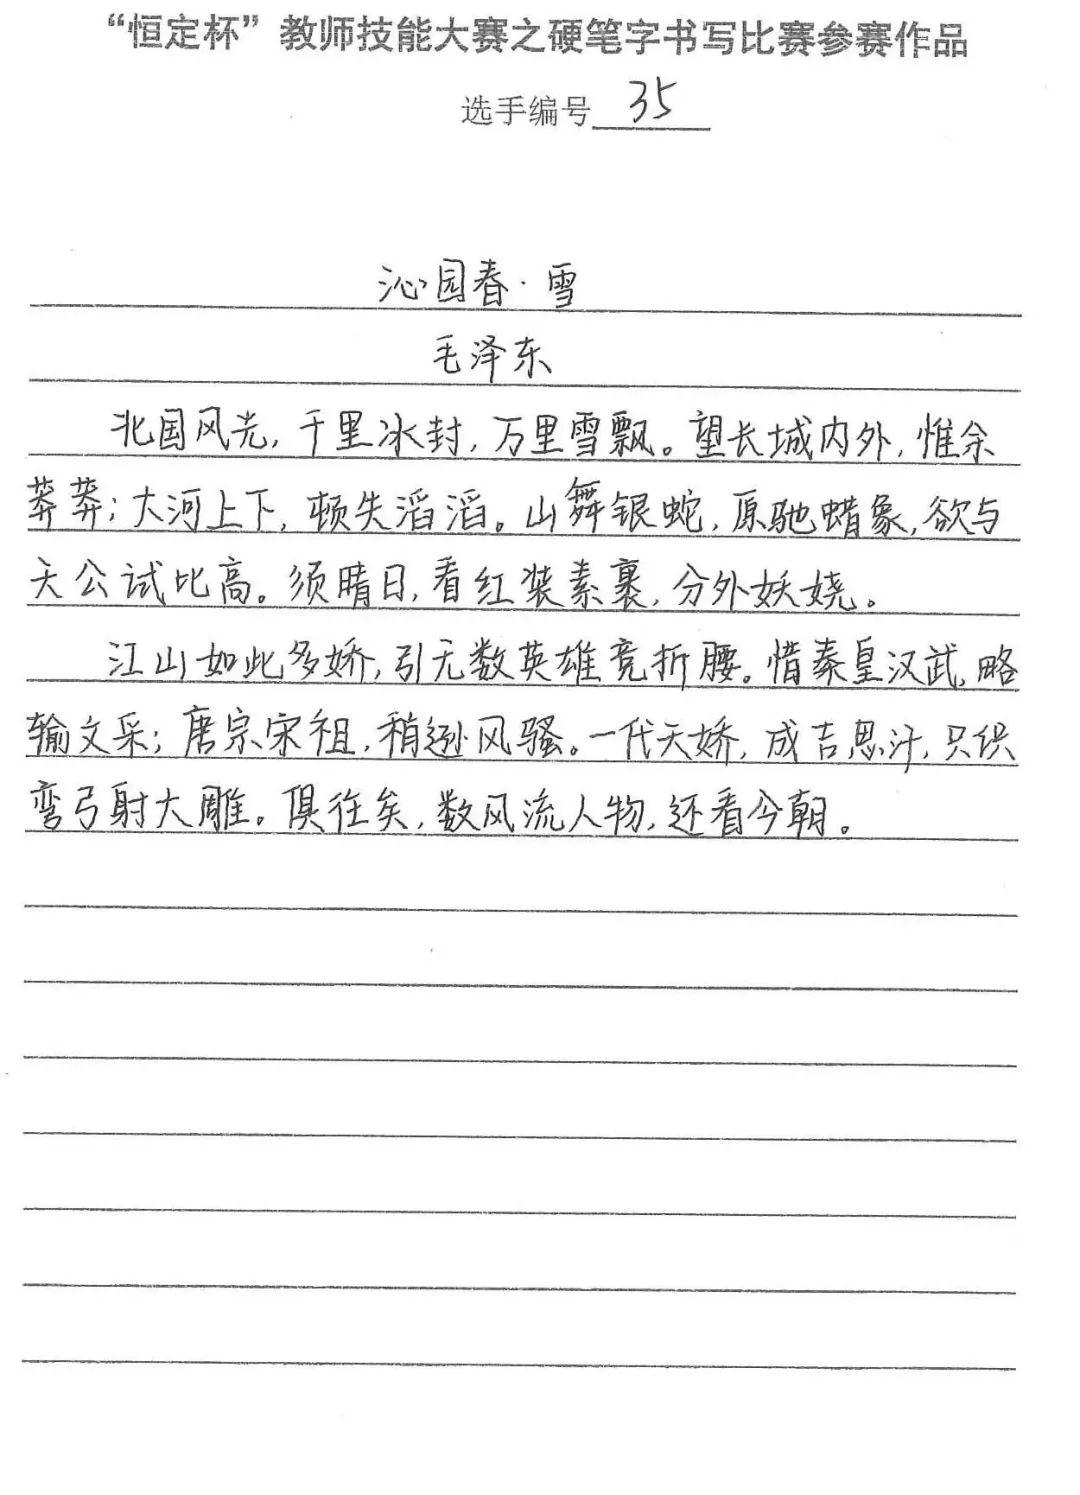 “恒定杯”教师技能大赛之硬笔字书写比赛参赛作品
选手编号 35
沁园春·雪
毛泽东
北国风光，千里冰封，万里雪飘。望长城内外，惟余
莽莽；大河上下，顿失滔滔。山舞银蛇，原驰蜡象，欲与
天公试比高。须晴日，看红装素裹，分外妖娆。
江山如此多娇，引无数英雄竞折腰。惜秦皇汉武，略
输文采；唐宗宋祖，稍逊风骚。一代天娇，成吉思汗，只供
弯弓射大雕。俱往矣，数风流人物，还看今朝。